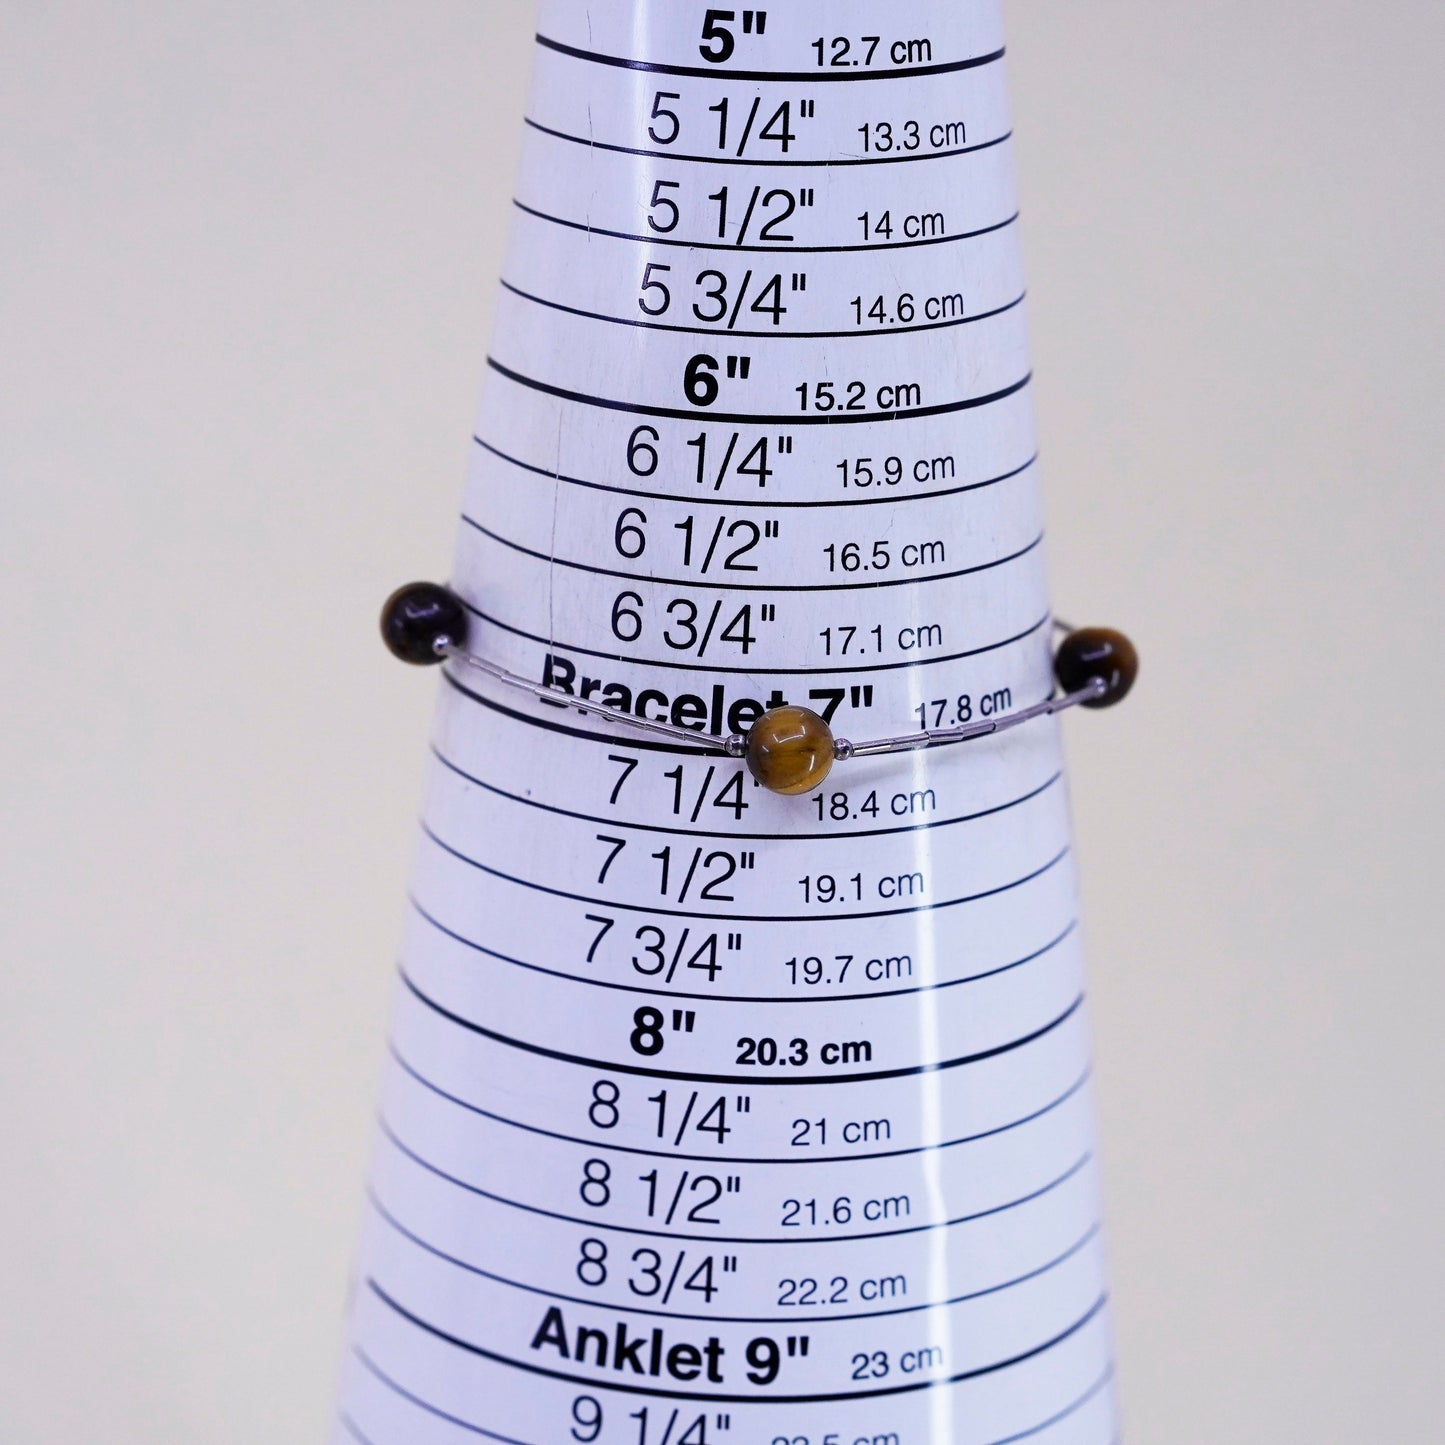 5" 12.7 cm
5 1/4" 13.3 cm
5 1/2" 14 cm
5 3/4" 14.6 cm
6" 15.2 cm
6 1/4" 15.9 cm
6 1/2" 16.5 cm
6 3/4" 17.1 cm
Bracelet 7" 17.8 cm
7 1/4 18.4 cm
7 1/2" 19.1 cm
7 3/4" 19.7 cm
8" 20.3 cm
8 1/4" 21 cm
8 1/2" 21.6 cm
8 3/4" 22.2 cm
Anklet 9" 23 cm
9 1/4" 23.5 cm